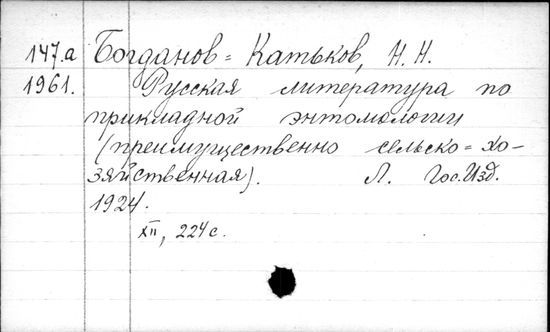 147.а Богданов=Катьков, Н.Н.
1961. Русская литература по
прикладной энтомологии
(преимущественно сельско=хо-
зяйственная). Л. Гос.Изд.
1924.
XII, 224 с.